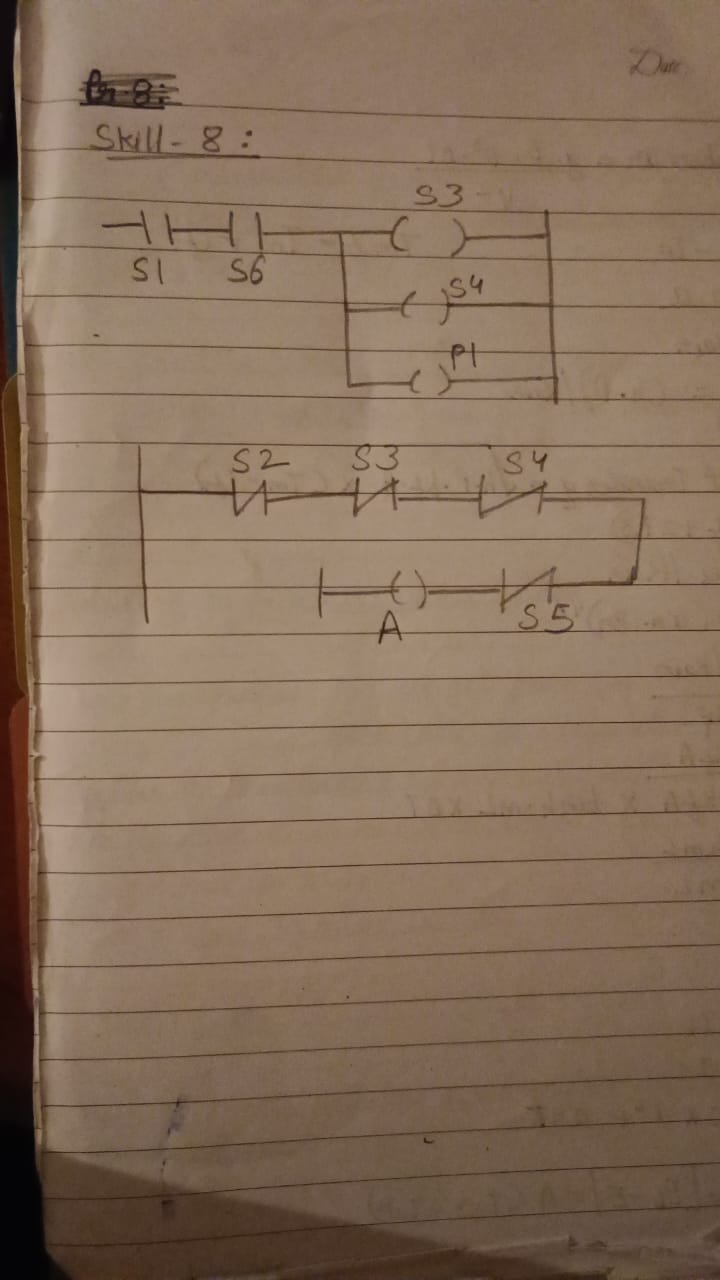 Date
Skill - 8 :
S3
S1 S6
S4
P1
S2 S3 S4
A S5